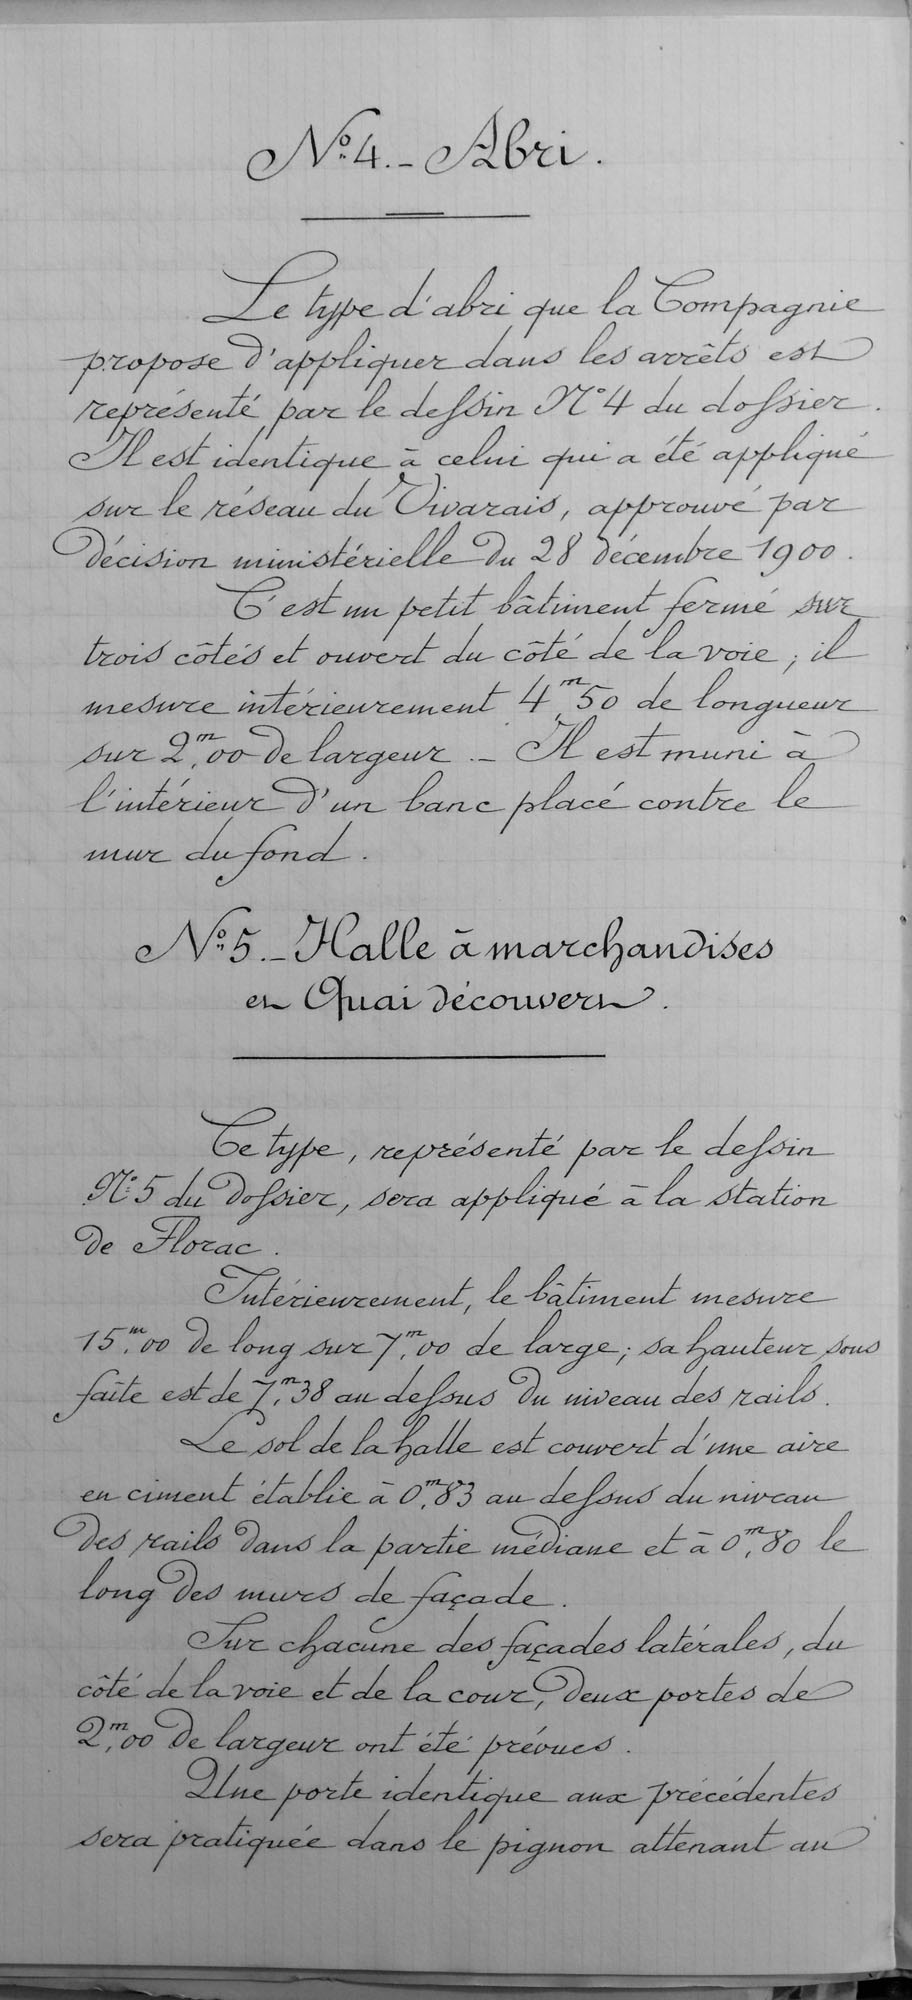 Nº 4. — Abri.
Le type d'abri que la Compagnie
propose d'appliquer dans les arrêts est
représenté par le dessin Nº 4 du dossier.
Il est identique à celui qui a été appliqué
sur le réseau du Vivarais, approuvé par
décision ministérielle du 28 décembre 1900.
C'est un petit bâtiment fermé sur
trois côtés et ouvert du côté de la voie; il
mesure intérieurement 4,ᵐ50 de longueur
sur 2,ᵐ00 de largeur. — Il est muni à
l'intérieur d'un banc placé contre le
mur du fond.
Nº 5. — Halle à marchandises
et Quai découvert.
Ce type, représenté par le dessin
Nº 5 du dossier, sera appliqué à la station
de Florac.
Intérieurement, le bâtiment mesure
15,ᵐ00 de long sur 7,ᵐ00 de large; sa hauteur sous
faîte est de 7,ᵐ38 au dessus du niveau des rails.
Le sol de la halle est couvert d'une aire
en ciment établie à 0,ᵐ83 au dessus du niveau
des rails dans la partie médiane et à 0,ᵐ80 le
long des murs de façade.
Sur chacune des façades latérales, du
côté de la voie et de la cour, deux portes de
2,ᵐ00 de largeur ont été prévues.
Une porte identique aux précédentes
sera pratiquée dans le pignon attenant au